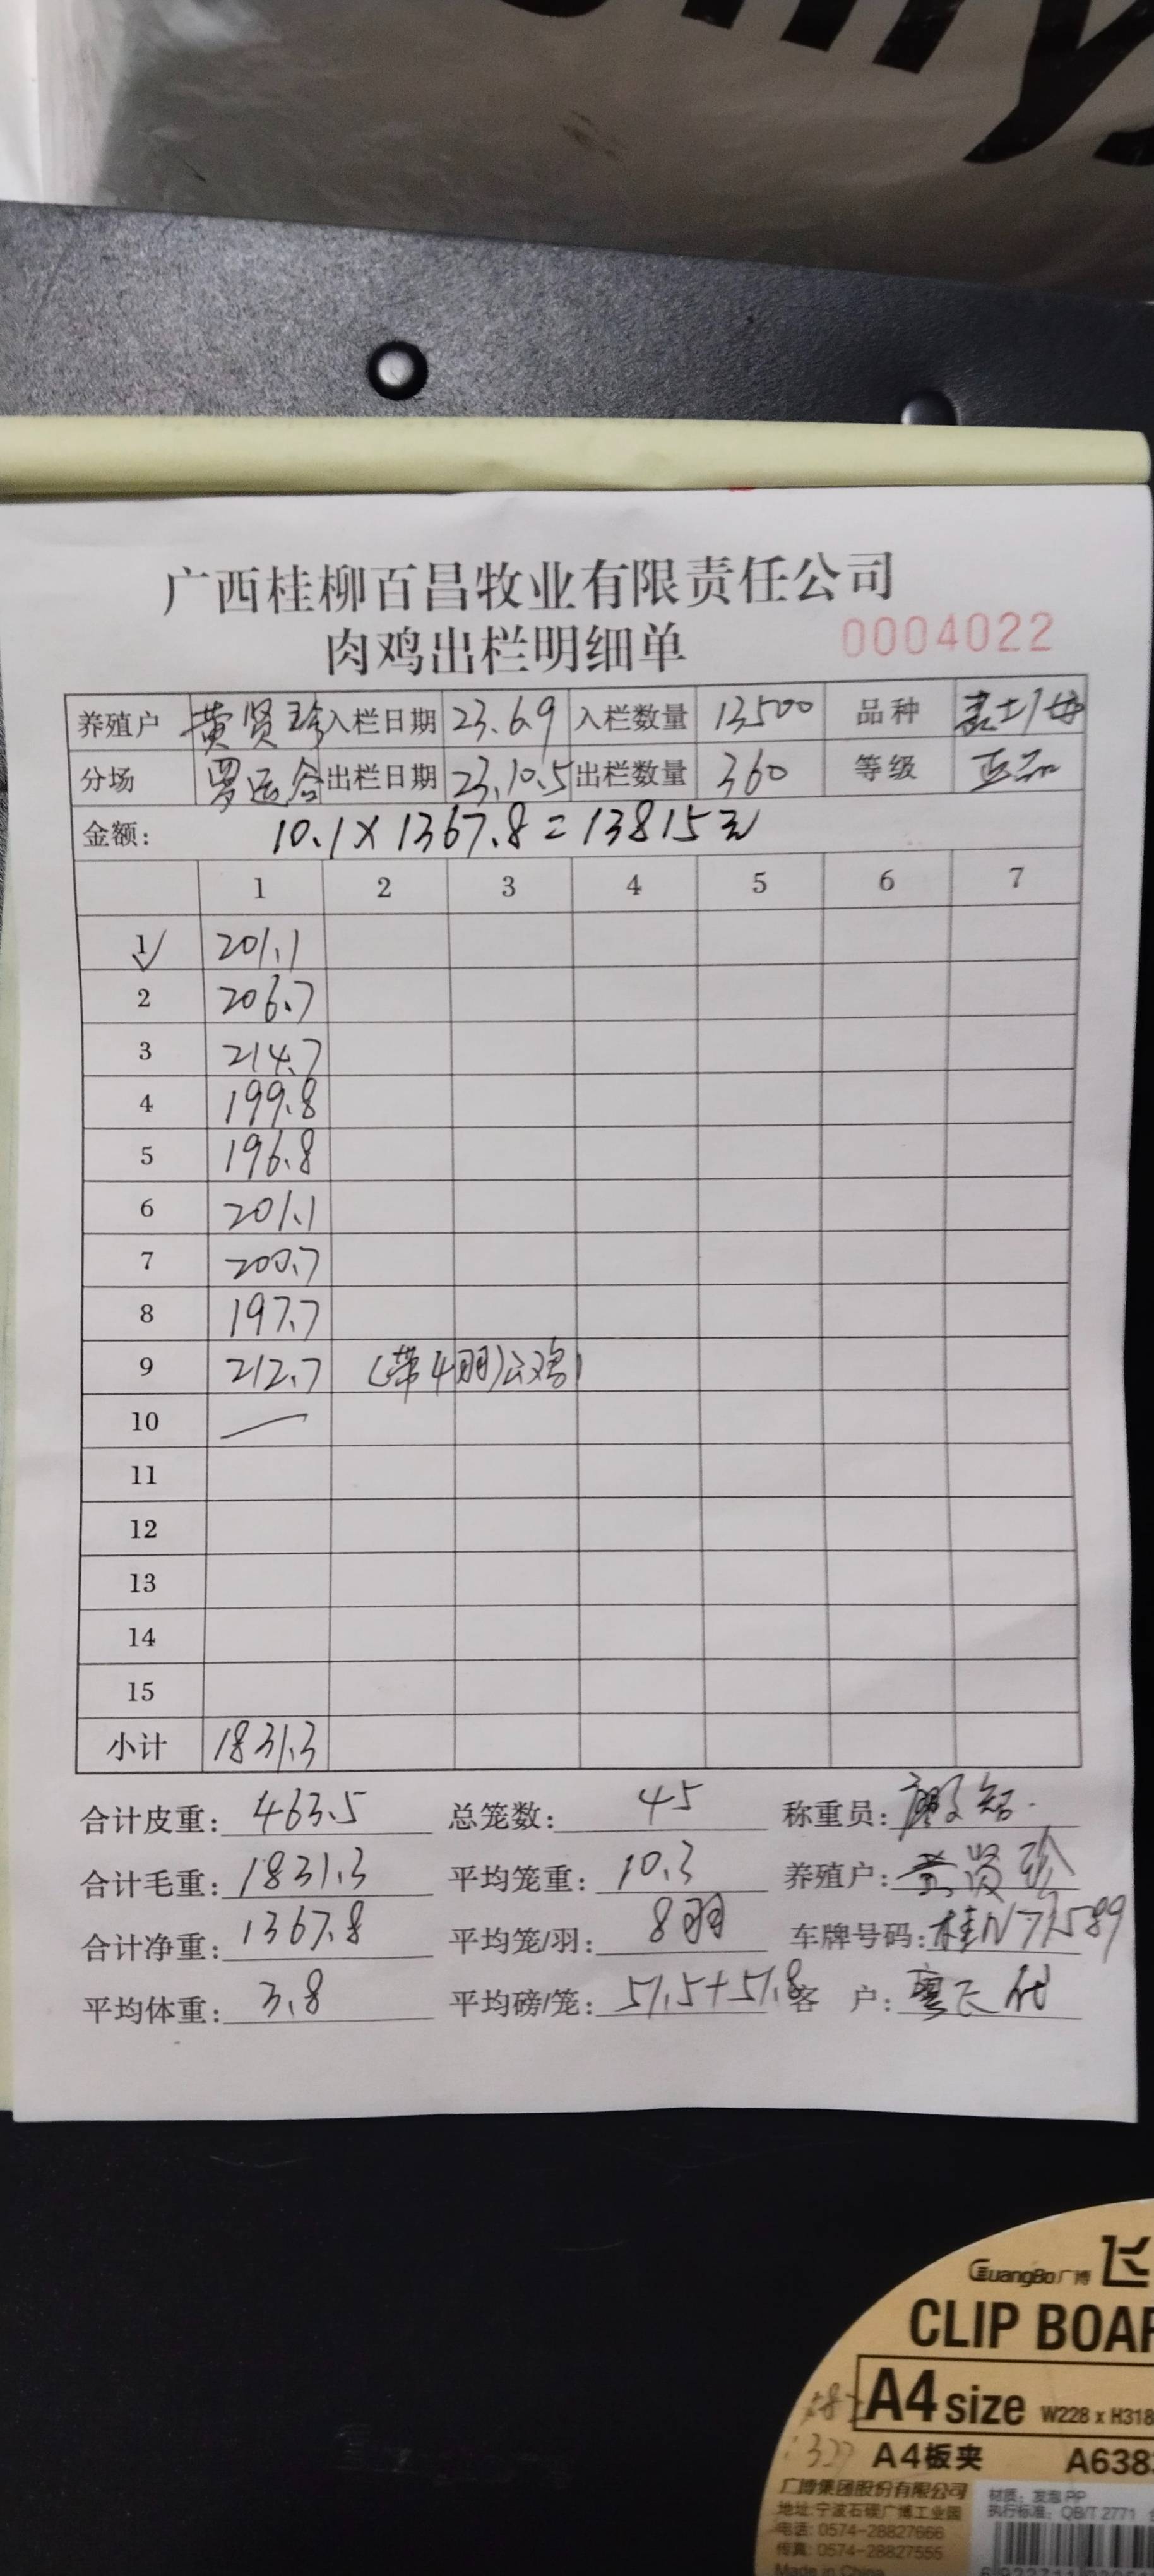 广西桂柳百昌牧业有限责任公司
肉鸡出栏明细单 0004022
养殖户 黄贤珍 入栏日期 23.6.9 入栏数量 13500 品种
分场 罗运合 出栏日期 23.10.5 出栏数量 360 等级 正品
金额: 10.1×1367.8=13815元
1 2 3 4 5 6 7
1 201.1
2 206.7
3 214.7
4 199.8
5 196.8
6 201.1
7 200.7
8 197.7
9 212.7 (带4羽)公鸡
10
11
12
13
14
15
小计 1831.3
合计皮重: 463.5 总笼数: 45 称重员:
合计毛重: 1831.3 平均笼重: 10.3 养殖户: 黄贤珍
合计净重: 1367.8 平均笼/羽: 8羽 车牌号码:
平均体重: 3.8 平均磅/笼: 51.5+51.8 客 户:
GuangBo广博
CLIP BOAR
A4 size W228 x H318
A4板夹 A638
广博集团股份有限公司
地址:宁波石碶广博工业园
电话: 0574-28827666
传真: 0574-28827555
Made in China
材质: 发泡PP
执行标准: QB/T 2771